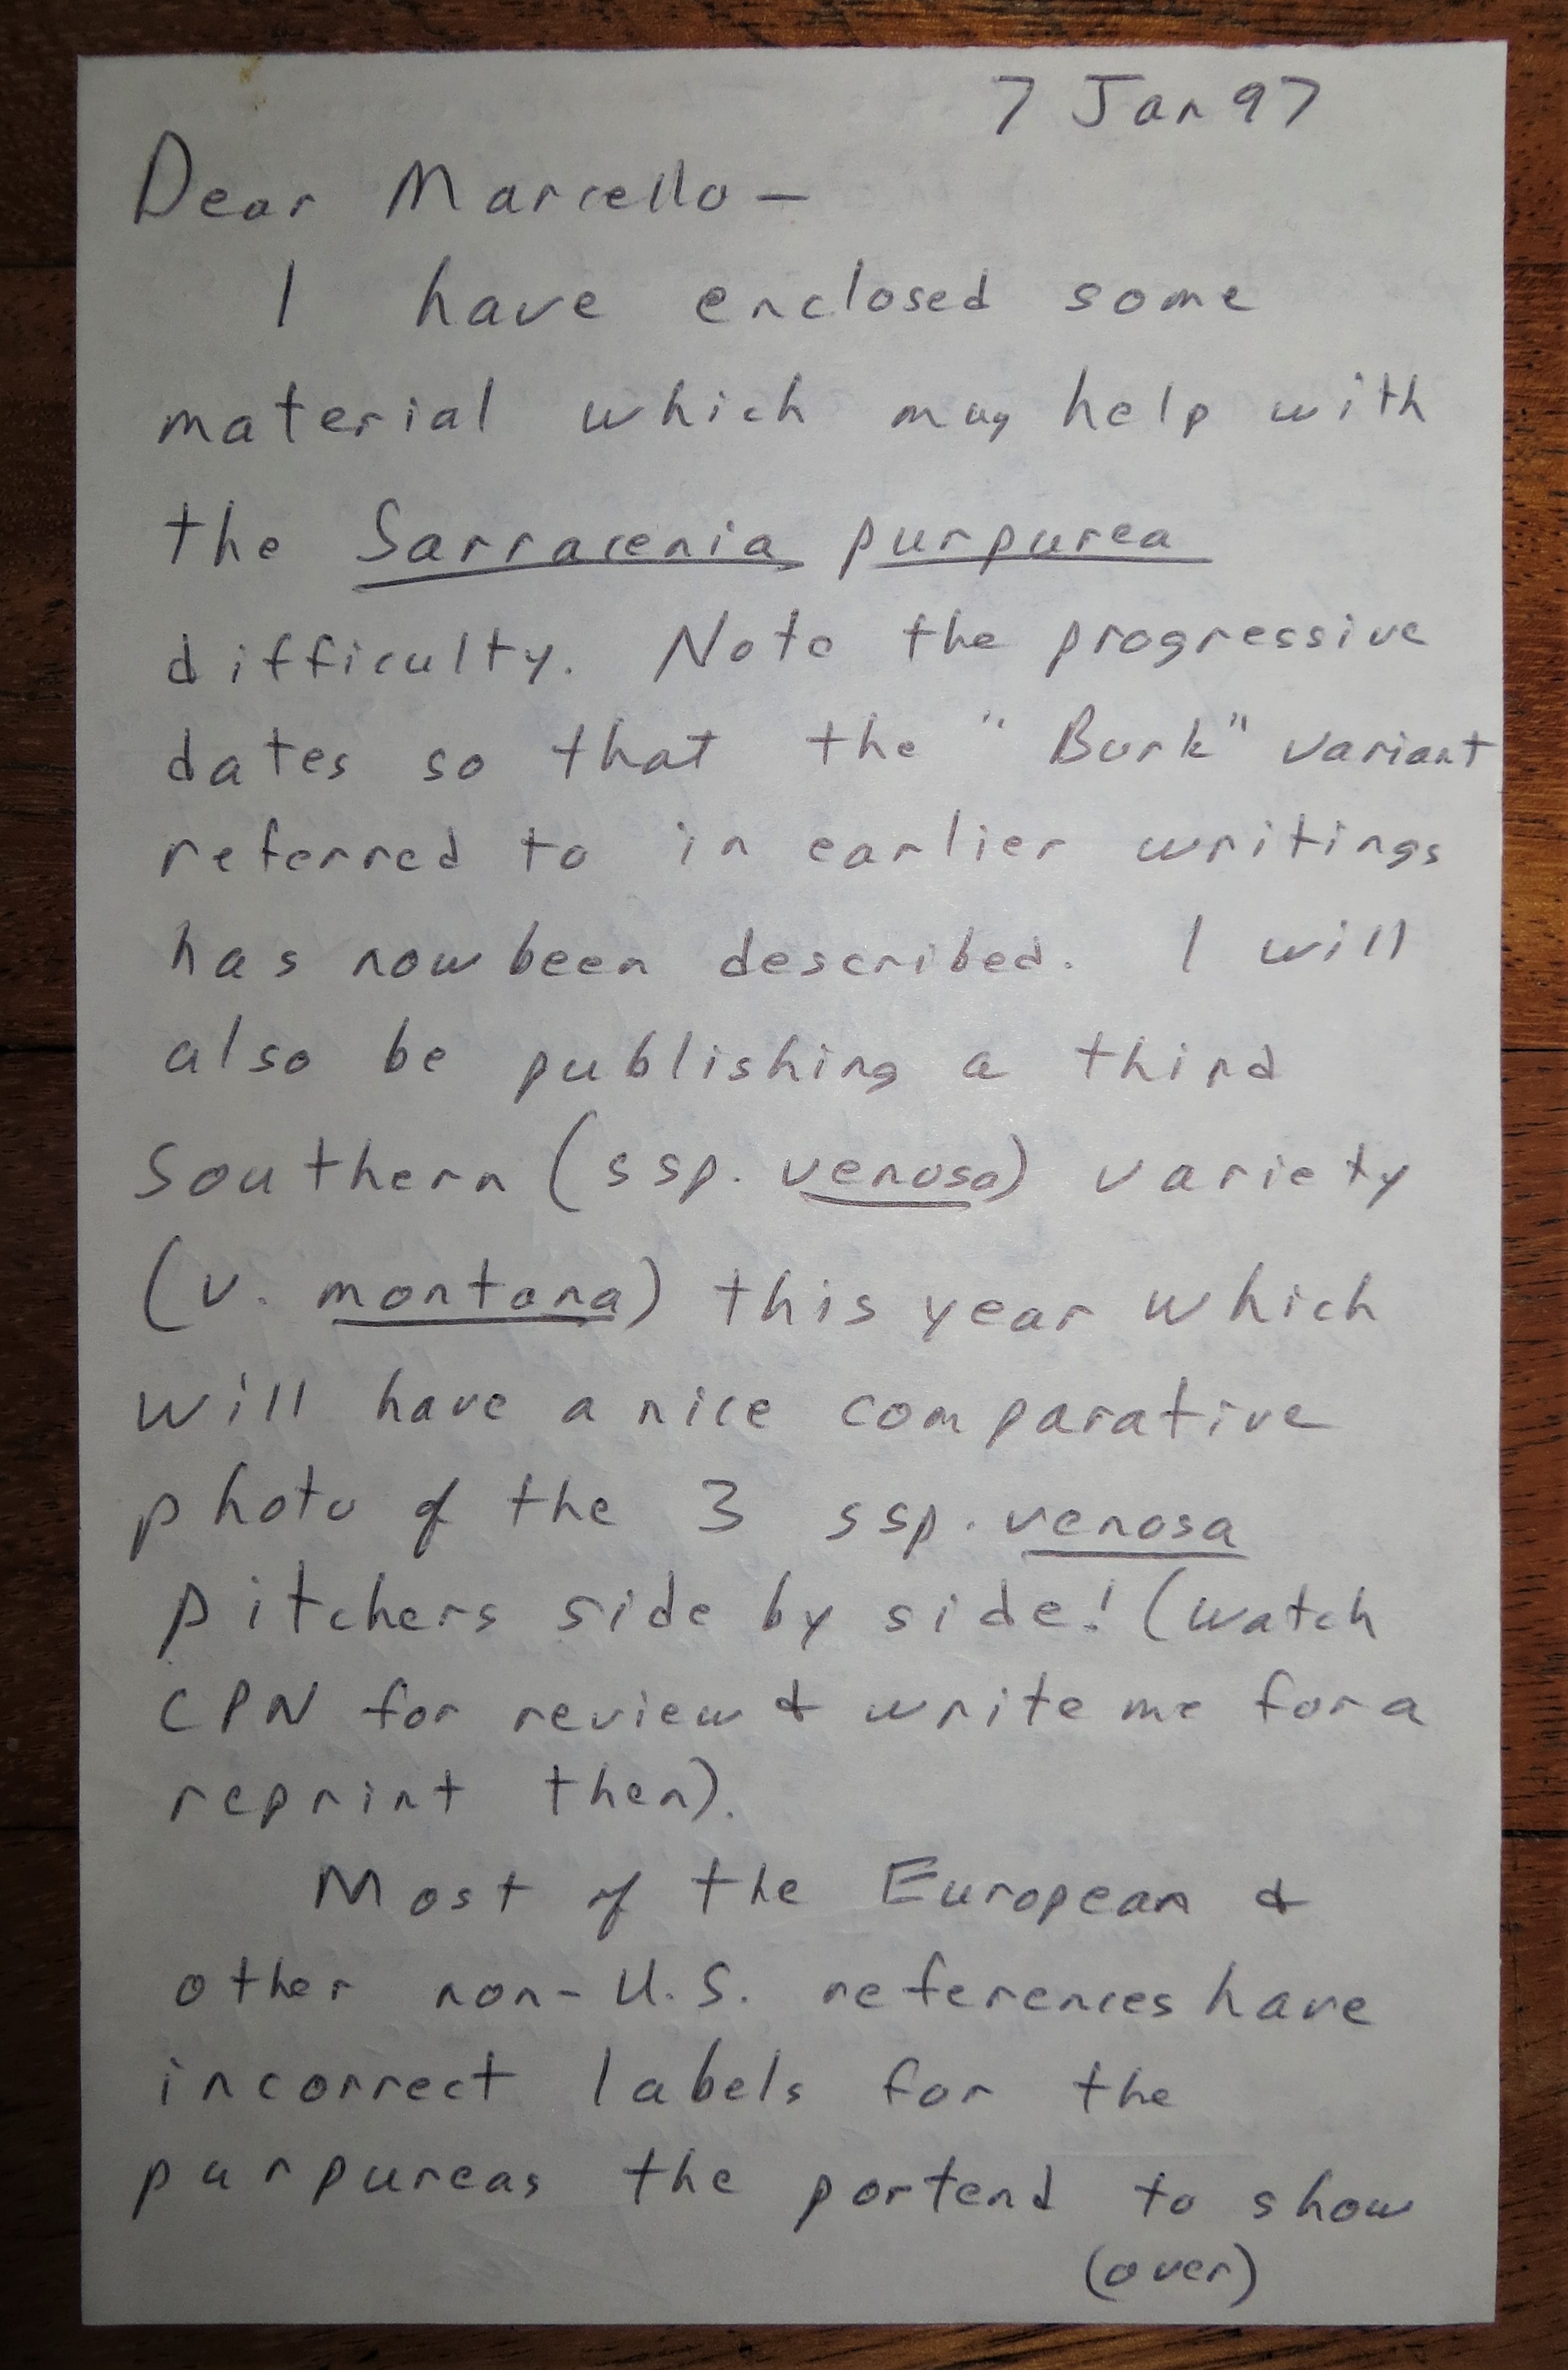 7 Jan 97
Dear Marcello —
I have enclosed some
material which may help with
the Sarracenia purpurea
difficulty. Note the progressive
dates so that the "Burk" variant
referred to in earlier writings
has now been described. I will
also be publishing a third
Southern (ssp. venosa) variety
(v. montana) this year which
will have a nice comparative
photo of the 3 ssp. venosa
pitchers side by side! (watch
CPN for review & write me for a
reprint then).
Most of the European &
other non-U.S. references have
incorrect labels for the
purpureas the portend to show
(over)